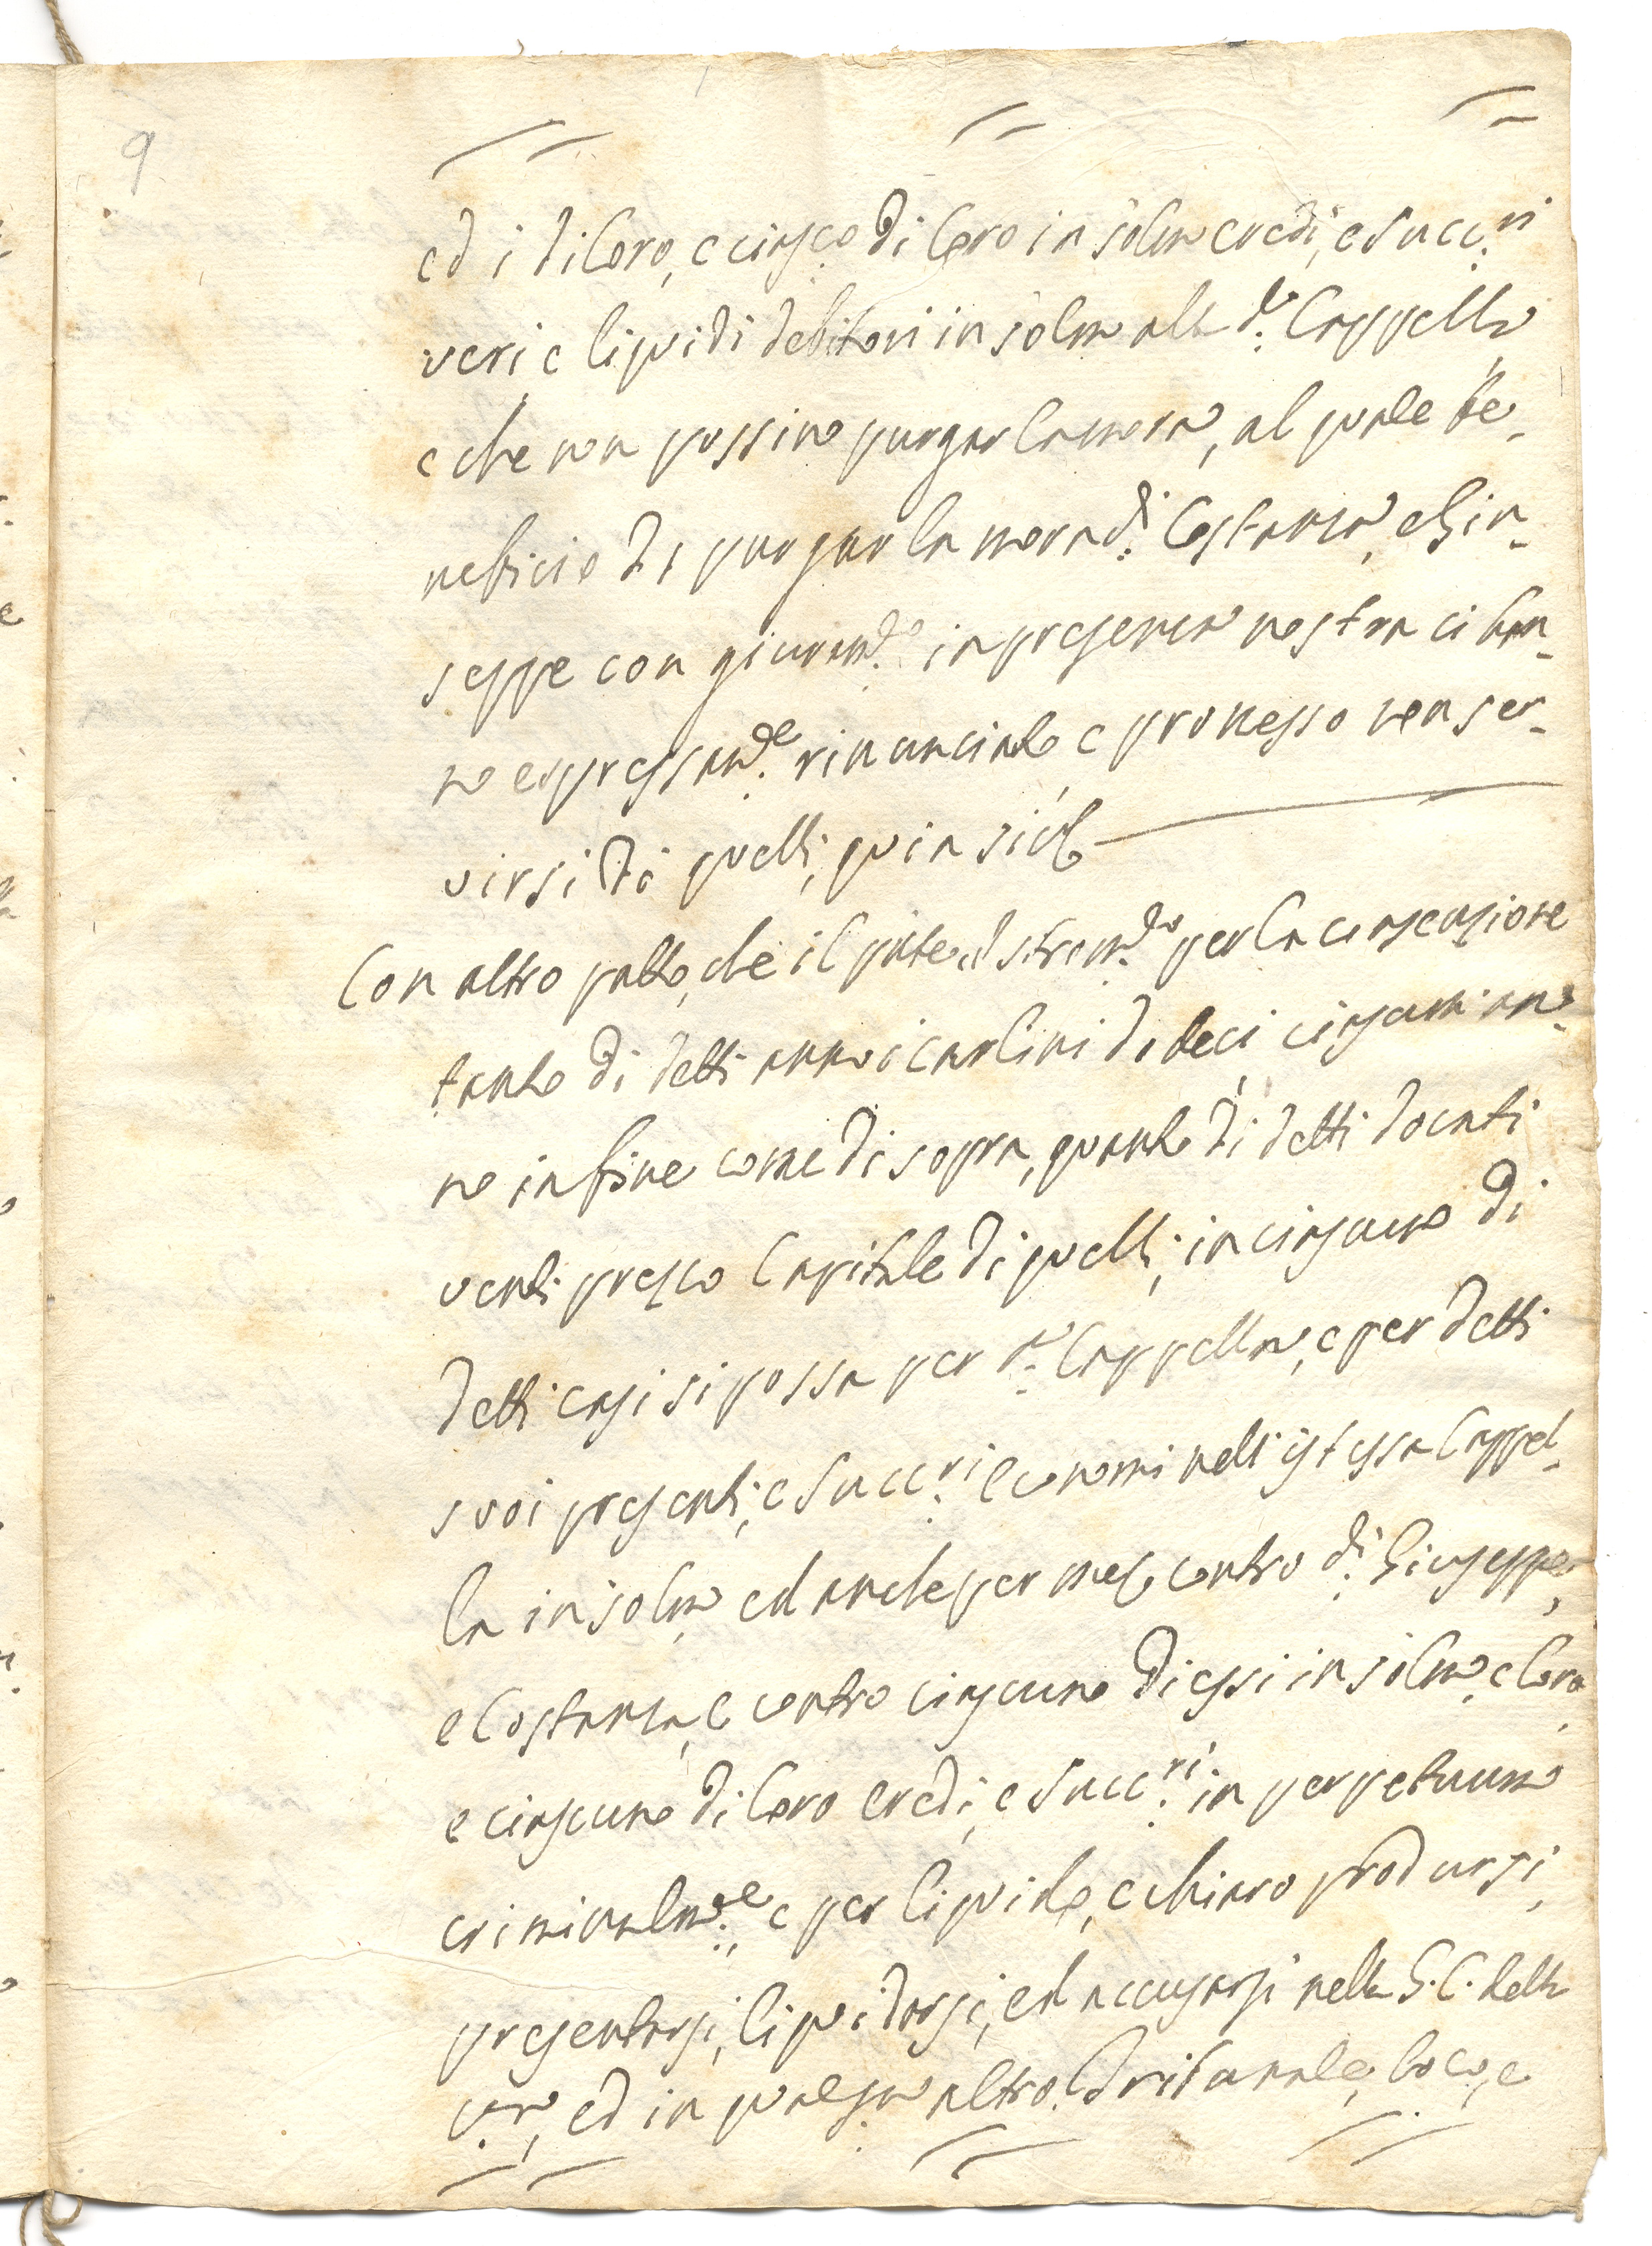 9
ed i di loro, e ciasc.o di loro in solm eredi, e Succ.ri
veri e liquidi debitori in solm alla d.a Cappella
e che non possino purgar la mora, al quale be-
neficio di purgar la mora d.i Costanza, e Giu-
seppe con giuram.to in presenza nostra ci han-
no expressam.te rinunciato e promesso non ser-
virsi di quelli, quia sic
Con altro patto, che il pnte istrom.to per la consecuzione
tanto di detti annui carlini dideci ciascun an-
no in fine come di sopra, quanto di detti docati
venti prezzo Capitale di quelli, in ciascuno di
detti casi si possa per d.a Cappella, e per detti
suoi presenti, e Succ.ri economi nell' istessa Cappel-
la in solm, ed anche per mezo contro d.i Giuseppe,
e Costanza, e contro ciascuno di essi in solm, e loro,
e ciascuno di loro eredi, e Succ.ri in perpetuum
criminalm.te, e per liquido, e chiaro prodursi,
presentarsi, liquidarsi, ed accusarsi nella G. C. della
V.ria, ed in qualsia altro Tribunale, loco, e